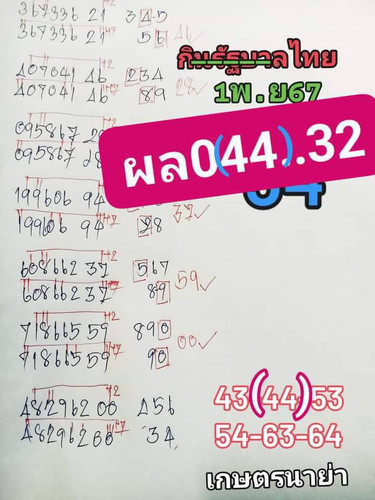 367336 21 +2 345
367336 21 56 26 ✓
กินรัฐบาลไทย
1พ.ย67
407041 46 +2 234
407041 46 89 28 ✓
095867 28
095867 28
ผล0(44)..32
64
199606 94 +2
199606 94 +7 28 37 ✓
608662 37 +2 567
608662 37 89 59 ✓
718665 59 +2 890
718665 59 90 00 ✓
482962 00 +2 456
482962 00 +7 34
43(44)53
54-63-64
เกษตรนาย่า